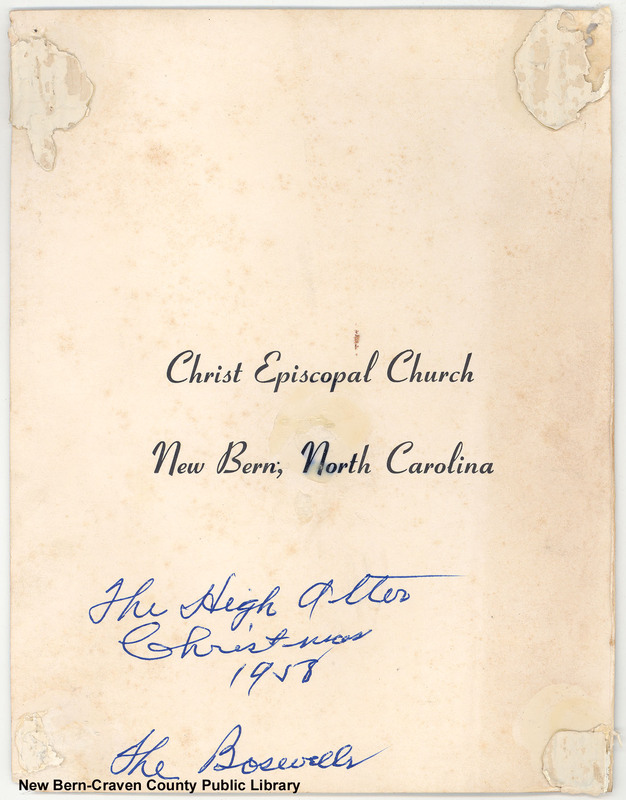 Christ Episcopal Church
New Bern, North Carolina
The High Alter
Christmas
1958
The Boswells
New Bern-Craven County Public Library